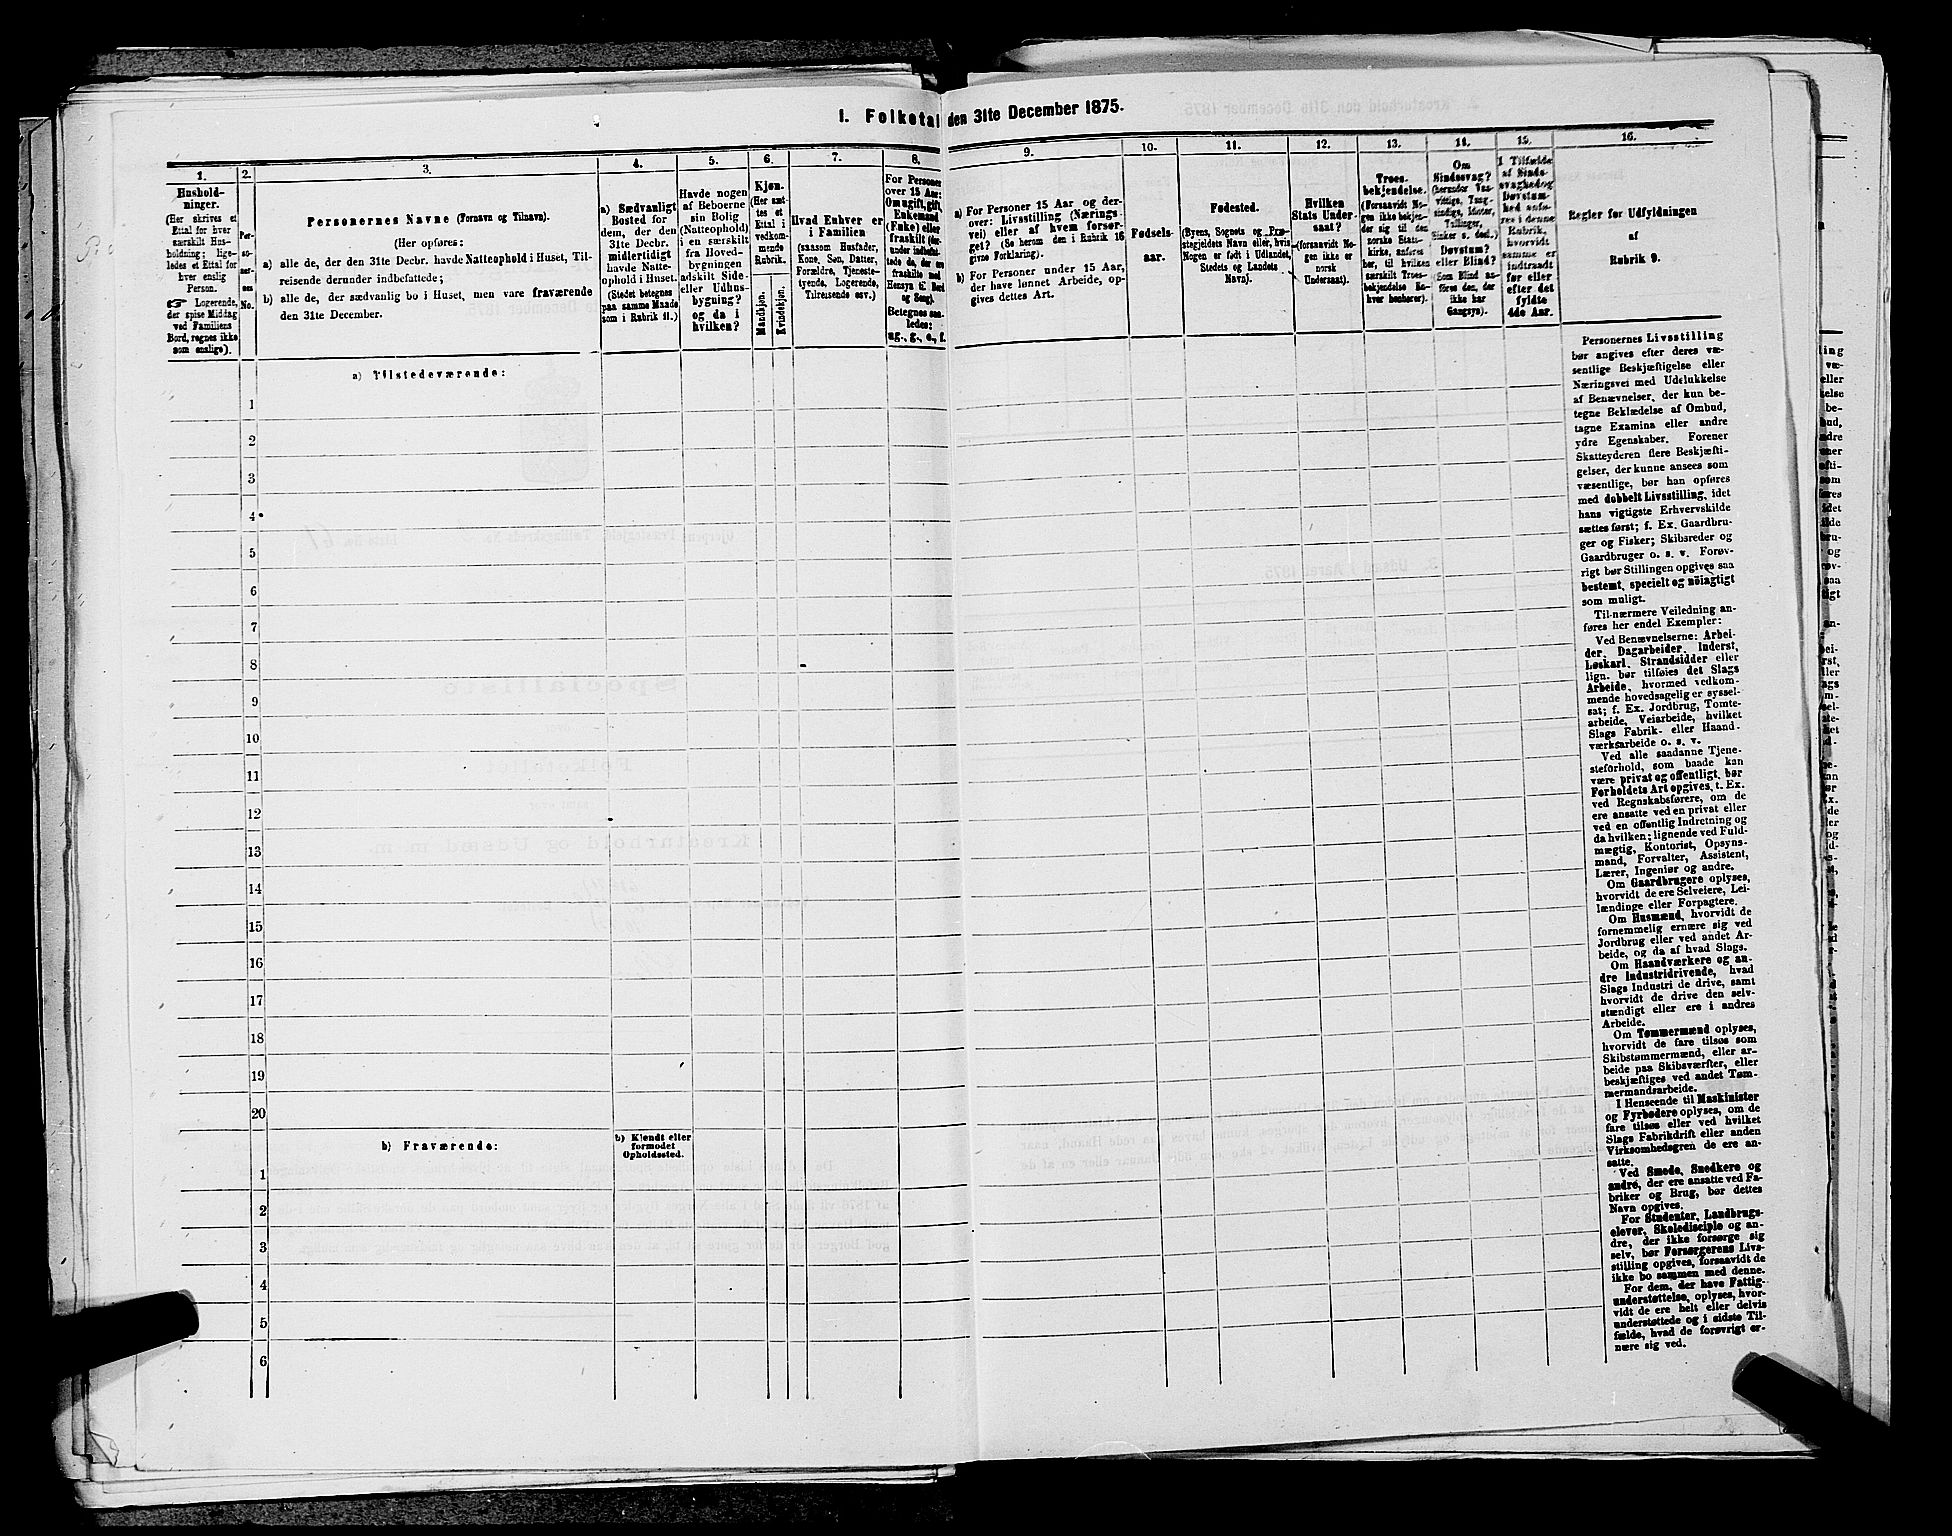 1. Folketal den 31te December 1875.
1.
Hushold-
ninger.
(Her skrives et
Ettal for hver
særskilt Hus-
holdning; lige-
ledes et Ettal for
hver enslig
Person.
☞ Logerende,
der spise Middag
ved Familiens
Bord, regnes ikke
som enslige).
2.
Per-
so-
ner-
nes
No.
3.
Personernes Navne (Fornavn og Tilnavn).
(Her opføres:
a) alle de, der den 31te Decbr. havde Natteophold i Huset, Til-
reisende derunder indbefattede;
b) alle de, der sædvanlig bo i Huset, men vare fraværende
den 31te December.
4.
a) Sædvanligt
Bosted for
dem, der den
31te Decbr.
midlertidigt
havde Natte-
ophold i Huset.
(Stedet betegnes
paa samme Maade
som i Rubrik 11.)
5.
Havde nogen
af Beboerne
sin Bolig
(Natteophold)
i en særskilt
fra Hoved-
bygningen
adskilt Side-
eller Udhus-
bygning?
og da i
hvilken?
6.
Kjøn.
(Her sæt-
tes et
Ettal i
vedkom-
mende
Rubrik.
Mandkjøn.
Kvindekjøn.
7.
Hvad Enhver er
i Familien
(saasom Husfader,
Kone, Søn, Datter,
Forældre, Tjeneste-
tyende, Logerende,
Tilreisende osv.)
8.
For Personer
over 15 Aar:
Om ugift, gift,
Enkemand
(Enke) eller
fraskilt (der-
under indbefat-
tede de, der ere
fraskilte med
Hensyn til Bord
og Seng).
Betegnes saa-
ledes:
ug., g., e., f.
9.
a) For Personer 15 Aar og der-
over: Livsstilling (Nærings-
vei) eller af hvem forsør-
get? (Se herom den i Rubrik 16
givne Forklaring).
b) For Personer under 15 Aar,
der have lønnet Arbeide, op-
gives dettes Art.
10.
Fødsels-
aar.
11.
Fødested.
(Byens, Sognets og Præ-
stegjeldets Navn eller, hvis
Nogen er født i Udlandet,
Stedets og Landets
Navn).
12.
Hvilken
Stats Under-
saat?
(forsaavidt No-
gen ikke er
norsk
Undersaat).
13.
Troes-
bekjendelse.
(Forsaavidt No-
gen ikke bekjen-
der sig til den
norske Stats-
kirke, anføres
her, til hvilken
særskilt Troes-
bekjendelse En-
hver henhører).
14.
Om
Sindssvag?
(herunder Van-
vittige, Tung-
sindige, Idioter,
Tullinger,
Sinker o. desl.)
Døvstum?
eller Blind?
(Som Blind an-
føres den, der
ikke har
Gangsyn).
15.
I Tilfælde
af Sinds-
svaghed og
Døvstum-
hed anfø-
res i denne
Rubrik,
hvorvidt
samme er
indtraadt
før eller
efter det
fyldte
4de Aar.
16.
Regler for Udfyldningen
af
Rubrik 9.
Personernes Livsstilling
bør angives efter deres væ-
sentlige Beskjæftigelse eller
Næringsvei med Udelukkelse
af Benævnelser, der kun be-
tegne Beklædelse af Ombud,
tagne Examina eller andre
ydre Egenskaber. Forener
Skatteyderen flere Beskjæfti-
gelser, der kunne ansees som
væsentlige, bør han opføres
med dobbelt Livsstilling, idet
hans vigtigste Erhvervskilde
sættes først; f. Ex. Gaardbru-
ger og Fisker; Skibsreder og
Gaardbruger o. s. v. Forøv-
rigt bør Stillingen opgives saa
bestemt, specielt og nöiagtigt
som muligt.
Til nærmere Veiledning an-
føres her endel Exempler:
Ved Benævnelserne: Arbei-
der, Dagarbeider, Inderst,
Løskarl, Strandsidder eller
lign. bør tilføies det Slags
Arbeide, hvormed vedkom-
mende hovedsagelig er syssel-
sat; f. Ex. Jordbrug, Tomte-
arbeide, Veiarbeide, hvilket
Slags Fabrik- eller Haand-
værksarbeide o. s. v.
Ved alle saadanne Tjene-
steforhold, som baade kan
være privat og offentligt, bør
Forholdets Art opgives, t. Ex.
ved Regnskabsførere, om de
ere ansatte ved en privat eller
ved en offentlig Indretning og
da hvilken; lignende ved Fuld-
mægtig, Kontorist, Opsyns-
mand, Forvalter, Assistent,
Lærer, Ingeniør og andre.
Om Gaardbrugere oplyses,
hvorvidt de ere Selveiere, Lei-
lændinge eller Forpagtere.
Om Husmænd, hvorvidt de
fornemmelig ernære sig ved
Jordbrug eller ved andet Ar-
beide, og da af hvad Slags.
Om Haandværkere og an-
dre Industridrivende, hvad
Slags Industri de drive, samt
hvorvidt de drive den selv-
stændigt eller ere i andres
Arbeide.
Om Tømmermænd oplyses,
hvorvidt de fare tilsøs som
Skibstømmermænd, eller ar-
beide paa Skibsværfter, eller
beskjæftiges ved andet Tøm-
mermandsarbeide.
I Henseende til Maskinister
og Fyrbødere oplyses, om de
fare tilsøs eller ved hvilket
Slags Fabrikdrift eller anden
Virksomhedsgren de ere an-
satte.
Ved Smede, Snedkere og
andre, der ere ansatte ved Fa-
briker og Brug, bør dettes
Navn opgives.
For Studenter, Landbrugs-
elever, Skoledisciple og an-
dre, der ikke forsørge sig
selv, bør Forsørgerens Livs-
stilling opgives, forsaavidt de
ikke bo sammen med denne.
For dem, der have Fattig-
understøttelse, oplyses, hvor-
vidt de ere helt eller delvis
understøttede og i sidste Til-
fælde, hvad de forøvrigt er-
nære sig ved.
a) Tilstedeværende:
1
2
3
4
5
6
7
8
9
10
11
12
13
14
15
16
17
18
19
20
b) Fraværende:
b) Kjendt eller
formodet
Opholdssted.
1
2
3
4
5
6